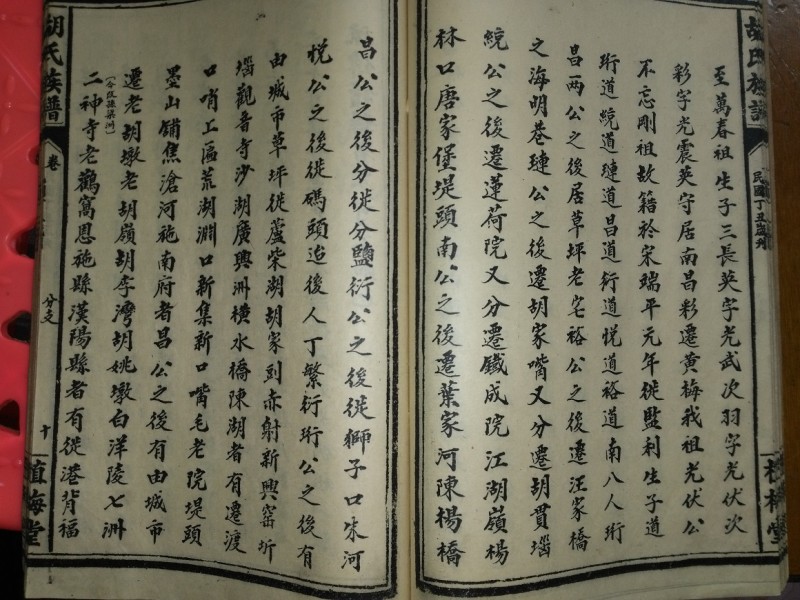 民國丁丑歲刊
至萬春祖生子三長英字光武次羽字光伏次
彩字光震英守居南昌彩遷黄梅我祖光伏公
不忘剛祖故籍於宋端平元年從監利生子道
珩道統道璉道昌道衍道悦道裕道南八人珩
昌两公之後居草坪老宅裕公之後遷汪家橋
之海明巷璉公之後遷胡家嘴又分遷胡貫堖
統公之後遷蓮荷院又分遷鐵成院江湖嶺楊
林口唐家堡堤頭南公之後遷葉家河陳楊橋
昌公之後分徙分鹽衍公之後徙獅子口朱河
悦公之後徙碼頭迨後人丁繁衍珩公之後有
由城市草坪徙蘆柴湖胡家剅赤射新興窑圻
堖觀音寺沙湖廣興洲横水橋陳湖者有遷渡
口哨工區荒湖淵口新集新口嘴毛老院堤頭
墨山鋪焦滄河施南府者昌公之後有由城市
遷老胡墩老胡嶺胡李灣胡姚墩白洋陵七洲
二神寺老鸛窩恩施縣漢陽縣者有從港背福
胡氏族譜
卷
分支
十
植梅堂